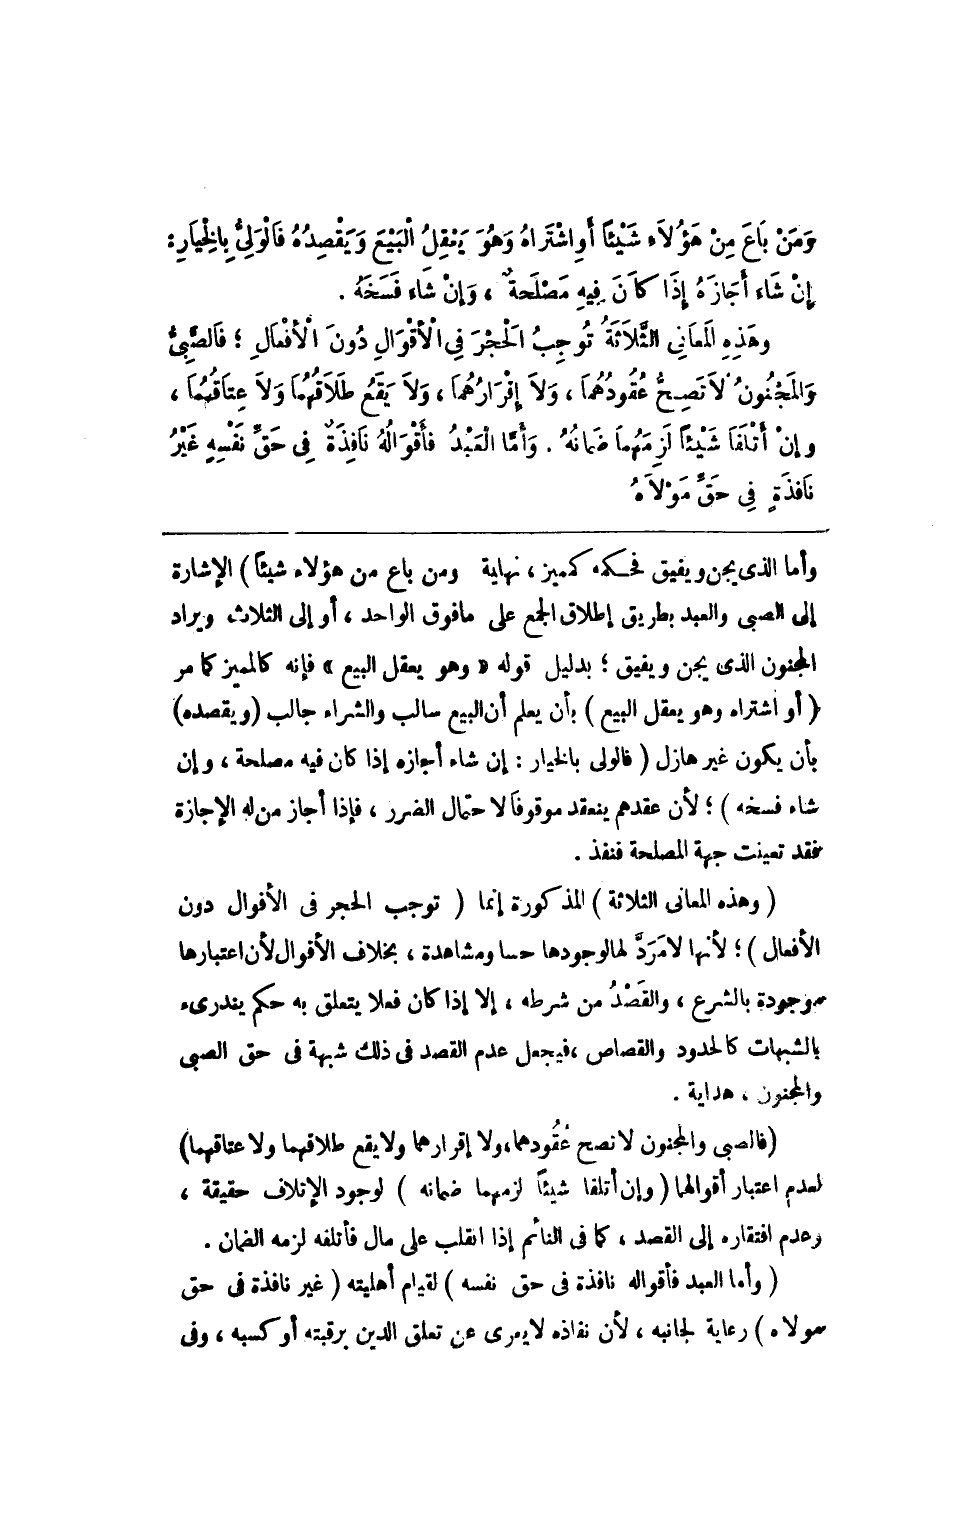 وَمَنْ بَاعَ مِنْ هَؤُلَاء شَيْئًا أَوِ اشْتَرَاهُ وَهُوَ يَعْقِلُ الْبَيْعَ وَيَقْصِدُهُ فَالْوَلِيُّ بِالْخِيَارِ:
إِنْ شَاء أَجَازَهُ إِذَا كَانَ فِيهِ مَصْلَحَةٌ ، وَإِنْ شَاء فَسَخَهُ .
وهَذِهِ المَعَانِى الثَّلَاثَةُ تُوجِبُ الْحَجْرَ فِى الْأَقْوَالِ دُونَ الْأَفْعَالِ ؛ فَالصَّبِىُّ
وَالمَجْنُونُ لَا تَصِحُّ عُقُودُهُمَا ، وَلَا إِقْرَارُهُمَا ، وَلَا يَقَعُ طَلَاقُهُمَا وَلَا عِتَاقُهُمَا ،
وإنْ أَتْلَفَا شَيْئًا لَزِمَهُمَا ضَمَانُهُ . وَأَمَّا الْعَبْدُ فأَقْوَالُهُ نَافِذَةٌ فِى حَقِّ نَفْسِهِ غَيْرُ
نَافِذَةٍ فِى حَقِّ مَوْلَاهُ
وأما الذى يجن ويفيق فحكمه كمميز ، نهاية ومن باع من هؤلاء شيئاً ) الإشارة
إلى الصبى والعبد بطريق إطلاق الجمع على مافوق الواحد ، أو إلى الثلاث ويراد
المجنون الذى يجن ويفيق ؛ بدليل قوله « وهو يعقل البيع » فإنه كالمميز كما مر
( أو اشتراه وهو يعقل البيع ) بأن يعلم أن البيع سالب والشراء جالب (ويقصده)
بأن يكون غير هازل ( فالولى بالخيار : إن شاء أجازه إذا كان فيه مصلحة ، وإن
شاء فسخه ) ؛ لأن عقدهم ينعقد موقوفاً لاحتمال الضرر ، فإذا أجاز من له الإجازة
فقد تعينت جهة المصلحة فنفذ .
( وهذه المعانى الثلاثة ) المذكورة إنما ( توجب الحجر فى الأقوال دون
الأفعال ) ؛ لأنها لامَرَدَّ لها لوجودها حسا ومشاهدة ، بخلاف الأقوال لأن اعتبارها
موجودة بالشرع ، والقَصْدُ من شرطه ، إلا إذا كان فعلا يتعلق به حكم يندرىء
بالشبهات كالحدود والقصاص ،فيجعل عدم القصد فى ذلك شبهة فى حق الصبى
والمجنون ، هداية .
(فالصبى والمجنون لا تصح عُقُودهما،ولا إقرارهما ولا يقع طلاقهما ولا عتاقهما)
لعدم اعتبار أقوالهما ( وإن أتلفا شيئاً لزمهما ضمانه ) لوجود الإتلاف حقيقة ،
وعدم افتقاره إلى القصد ، كما فى النائم إذا انقلب على مال فأتلفه لزمه الضمان .
( وأما العبد فأقواله نافذة فى حق نفسه ) لقيام أهليته ( غير نافذة فى حق
مولاه ) رعاية لجانبه ، لأن نفاذه لايعرى عن تعلق الدين برقبته أو كسبه ، وفى